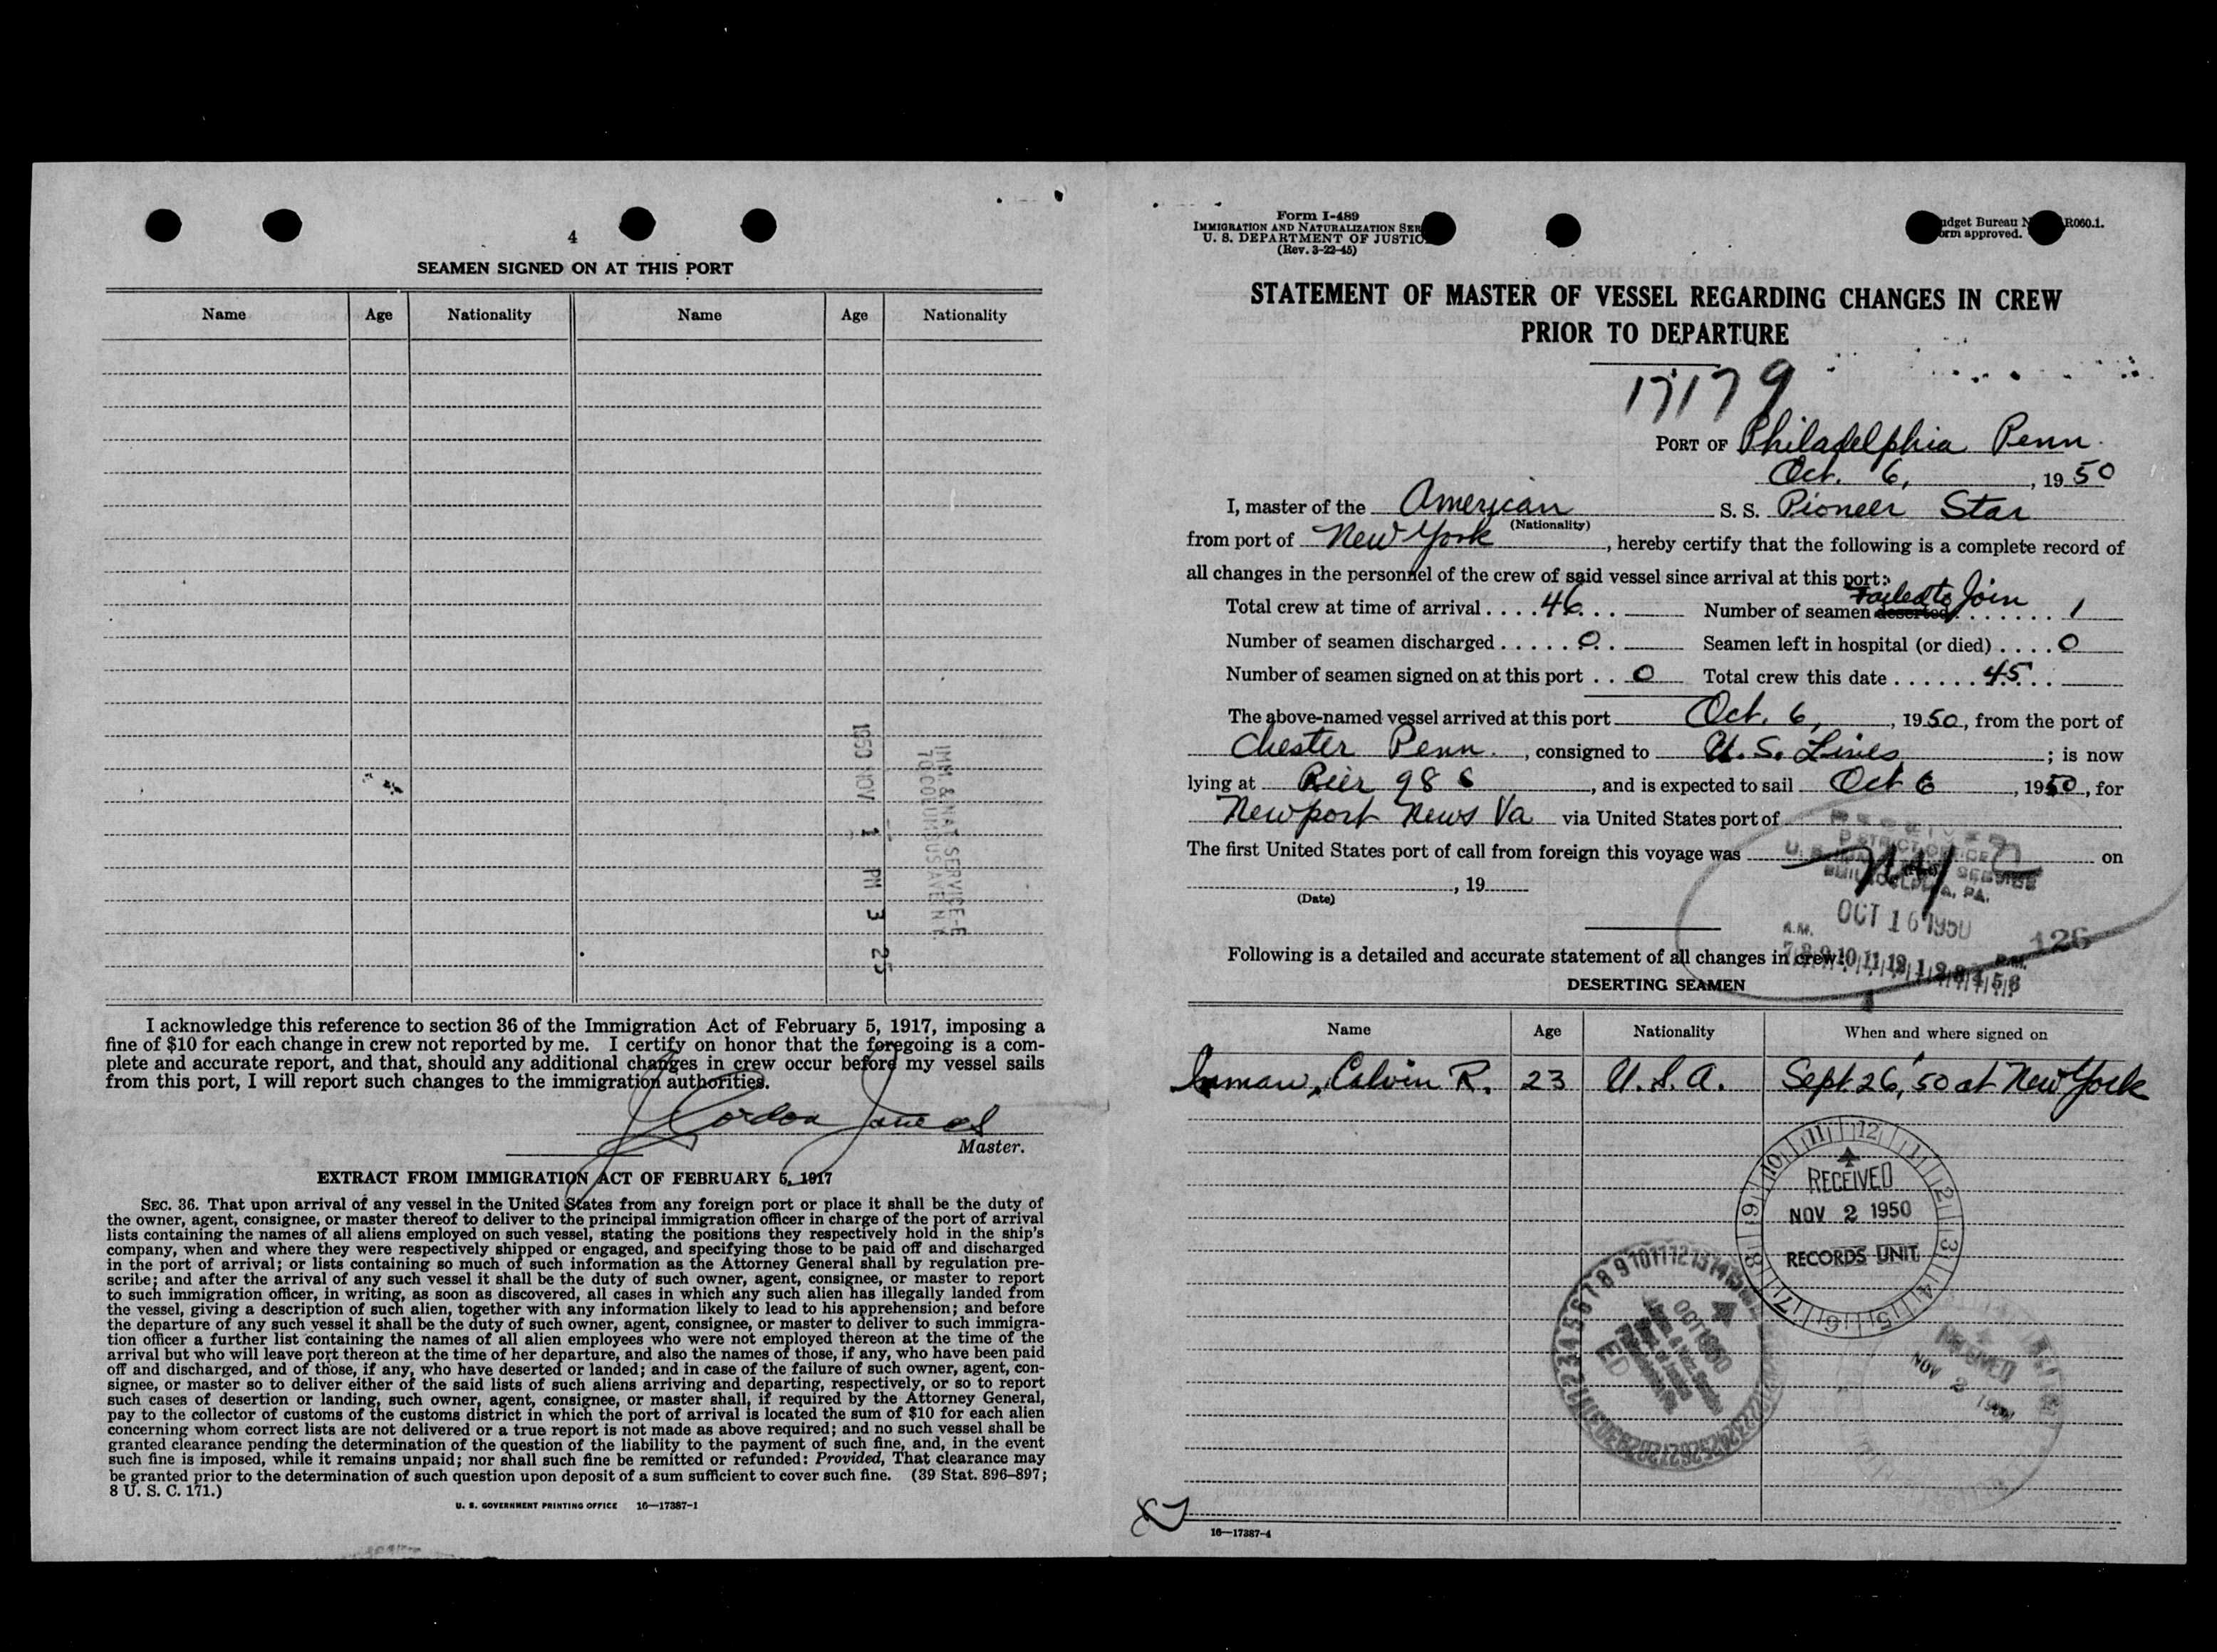 4
SEAMEN SIGNED ON AT THIS PORT
Name Age Nationality Name Age Nationality
1950 NOV 1 PM 3 25
IMM. & NAT. SERVICE-E
70 COLUMBUS AVE N.Y.
I acknowledge this reference to section 36 of the Immigration Act of February 5, 1917, imposing a
fine of $10 for each change in crew not reported by me. I certify on honor that the foregoing is a com-
plete and accurate report, and that, should any additional changes in crew occur before my vessel sails
from this port, I will report such changes to the immigration authorities.
Gordon
Master.
EXTRACT FROM IMMIGRATION ACT OF FEBRUARY 5, 1917
SEC. 36. That upon arrival of any vessel in the United States from any foreign port or place it shall be the duty of
the owner, agent, consignee, or master thereof to deliver to the principal immigration officer in charge of the port of arrival
lists containing the names of all aliens employed on such vessel, stating the positions they respectively hold in the ship's
company, when and where they were respectively shipped or engaged, and specifying those to be paid off and discharged
in the port of arrival; or lists containing so much of such information as the Attorney General shall by regulation pre-
scribe; and after the arrival of any such vessel it shall be the duty of such owner, agent, consignee, or master to report
to such immigration officer, in writing, as soon as discovered, all cases in which any such alien has illegally landed from
the vessel, giving a description of such alien, together with any information likely to lead to his apprehension; and before
the departure of any such vessel it shall be the duty of such owner, agent, consignee, or master to deliver to such immigra-
tion officer a further list containing the names of all alien employees who were not employed thereon at the time of the
arrival but who will leave port thereon at the time of her departure, and also the names of those, if any, who have been paid
off and discharged, and of those, if any, who have deserted or landed; and in case of the failure of such owner, agent, con-
signee, or master so to deliver either of the said lists of such aliens arriving and departing, respectively, or so to report
such cases of desertion or landing, such owner, agent, consignee, or master shall, if required by the Attorney General,
pay to the collector of customs of the customs district in which the port of arrival is located the sum of $10 for each alien
concerning whom correct lists are not delivered or a true report is not made as above required; and no such vessel shall be
granted clearance pending the determination of the question of the liability to the payment of such fine, and, in the event
such fine is imposed, while it remains unpaid; nor shall such fine be remitted or refunded: Provided, That clearance may
be granted prior to the determination of such question upon deposit of a sum sufficient to cover such fine. (39 Stat. 896–897;
8 U. S. C. 171.)
U. S. GOVERNMENT PRINTING OFFICE 16—17387-1
Form I-489
IMMIGRATION AND NATURALIZATION SER
U. S. DEPARTMENT OF JUSTIC
(Rev. 3-22-45)
udget Bureau N R060.1.
orm approved.
STATEMENT OF MASTER OF VESSEL REGARDING CHANGES IN CREW
PRIOR TO DEPARTURE
17179
PORT OF Philadelphia Penn.
Oct. 6, , 1950
I, master of the American S. S. Pioneer Star
(Nationality)
from port of New York , hereby certify that the following is a complete record of
all changes in the personnel of the crew of said vessel since arrival at this port:
Failed to Join
Total crew at time of arrival .... 46 .. Number of seamen deserted ...... 1
Number of seamen discharged ..... 0 .. Seamen left in hospital (or died) .... 0
Number of seamen signed on at this port .. 0 Total crew this date ...... 45 ..
The above-named vessel arrived at this port Oct. 6, , 1950, from the port of
Chester Penn. , consigned to U. S. Lines ; is now
lying at Pier 98 S , and is expected to sail Oct 6 , 1950, for
Newport News Va via United States port of
The first United States port of call from foreign this voyage was NY on
, 19
(Date)
RECEIVED
DISTRICT OFFICE
PHILADELPHIA, PA.
OCT 16 1950
A.M. P.M.
7 8 9 10 11 12 1 2 3 4 5 6
126
Following is a detailed and accurate statement of all changes in crew:
DESERTING SEAMEN
Name Age Nationality When and where signed on
Inman, Calvin R. 23 U.S.A. Sept. 26, '50 at New York
RECEIVED
NOV 2 1950
RECORDS UNIT
RECEIVED
NOV 2 1950
16—17387-4